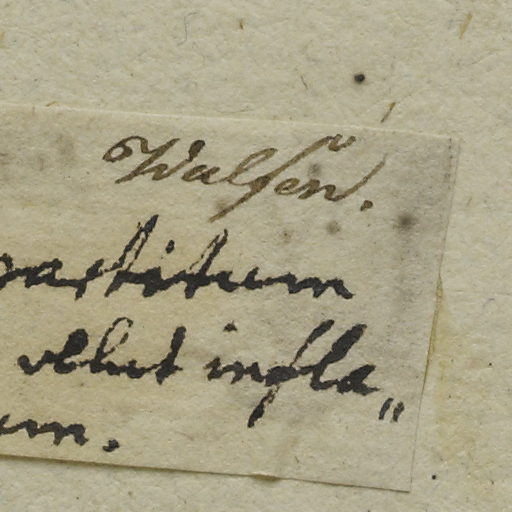 Walsen.
partitum
velut infla„
um.